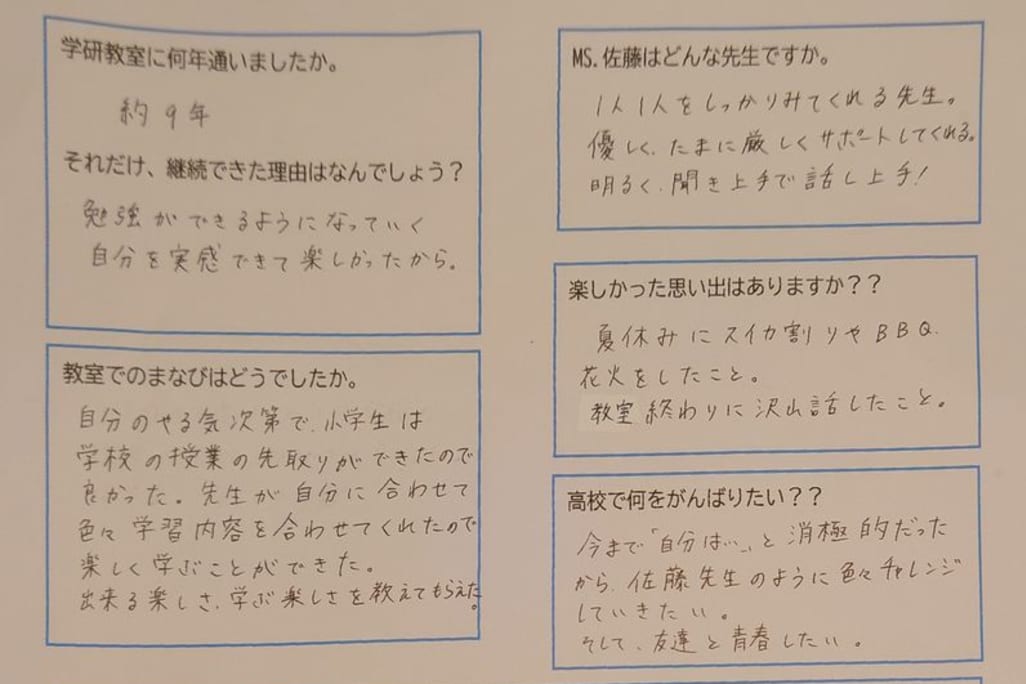 学研教室に何年通いましたか。
約9年
それだけ、継続できた理由はなんでしょう？
勉強ができるようになっていく
自分を実感できて楽しかったから。
教室でのまなびはどうでしたか。
自分のやる気次第で、小学生は
学校の授業の先取りができたので
良かった。先生が自分に合わせて
色々学習内容を合わせてくれたので
楽しく学ぶことができた。
出来る楽しさ、学ぶ楽しさを教えてもらえた。
MS.佐藤はどんな先生ですか。
1人1人をしっかりみてくれる先生。
優しく、たまに厳しくサポートしてくれる。
明るく、聞き上手で話し上手！
楽しかった思い出はありますか？？
夏休みにスイカ割りやBBQ、
花火をしたこと。
教室終わりに沢山話したこと。
高校で何をがんばりたい？？
今まで「自分は…」と消極的だった
から、佐藤先生のように色々チャレンジ
していきたい。
そして、友達と青春したい。